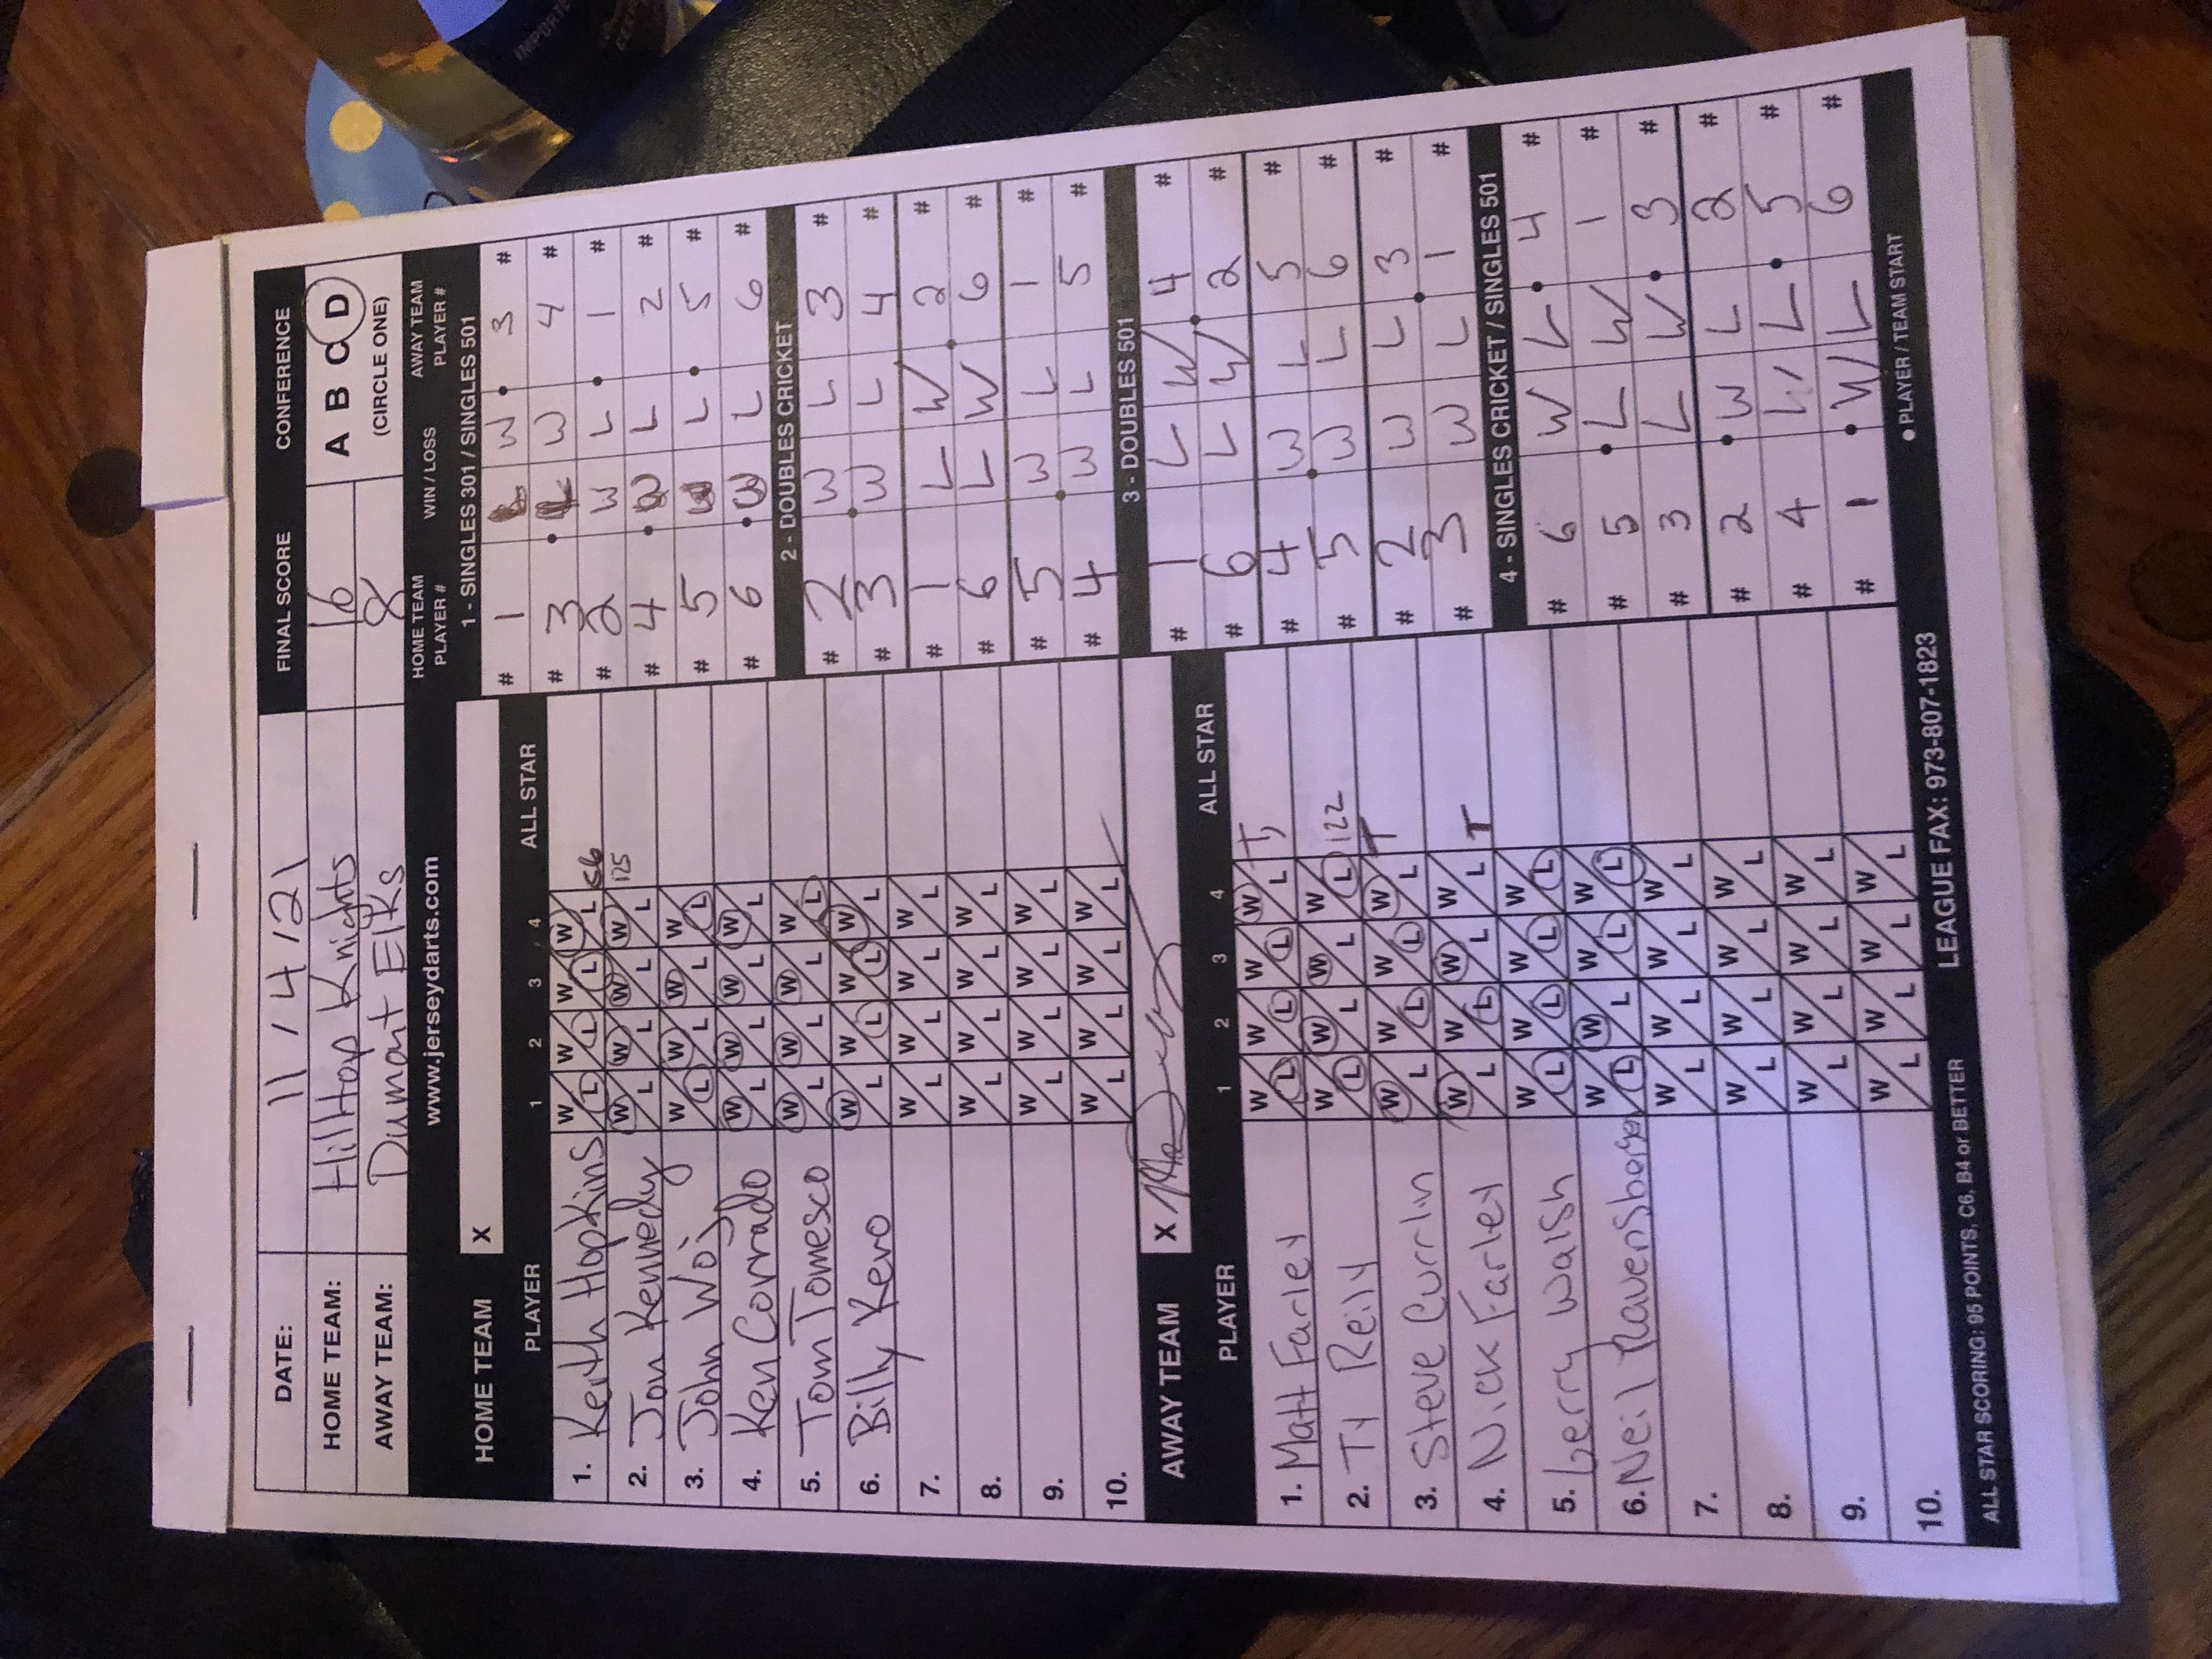 DATE: 11/4/21 FINAL SCORE CONFERENCE
HOME TEAM: HillTop Knights 16 A B C D
AWAY TEAM: Dumont Elks 2 (CIRCLE ONE)
www.jerseydarts.com
HOME TEAM X
PLAYER 1 2 3 4 ALL STAR
1. Keith Hopkins W L W L W L W L C6
2. Jon Kennedy W L W L W L W L 125
3. John Woj W L W L W L W L
4. Ken Corrado W L W L W L W L
5. Tom Tomesco W L W L W L W L
6. Billy Kevo W L W L W L W L
7. W L W L W L W L
8. W L W L W L W L
9. W L W L W L W L
10. W L W L W L W L
AWAY TEAM X
PLAYER 1 2 3 4 ALL STAR
1. Matt Farley W L W L W L W L T,
2. Ty Reily W L W L W L W L 122
3. Steve Currlin W L W L W L W L T
4. Nick Farley W L W L W L W L T
5. Gerry Walsh W L W L W L W L
6. Neil Ravensbergen W L W L W L W L
7. W L W L W L W L
8. W L W L W L W L
9. W L W L W L W L
10. W L W L W L W L
ALL STAR SCORING: 95 POINTS, C6, B4 or BETTER LEAGUE FAX: 973-807-1823
HOME TEAM PLAYER # WIN / LOSS AWAY TEAM PLAYER #
1 - SINGLES 301 / SINGLES 501
# 1 L W • 3 #
# 3 • L W 4 #
# 2 W L • 1 #
# 4 • W L 2 #
# 5 W L • 5 #
# 6 • W L 6 #
2 - DOUBLES CRICKET
# 2 W L 3 #
# 3 W L 4 #
# 1 L W 2 #
# 6 L W 6 #
# 5 W L 1 #
# 4 W L 5 #
3 - DOUBLES 501
# 1 L W 4 #
# 6 L W 2 #
# 4 W L 5 #
# 5 W L 6 #
# 2 W L 3 #
# 3 W L 1 #
4 - SINGLES CRICKET / SINGLES 501
# 6 W L • 4 #
# 5 • L W 1 #
# 3 L W • 3 #
# 2 • W L 2 #
# 4 W L • 5 #
# 1 • W L 6 #
• PLAYER / TEAM START
IMPORTE